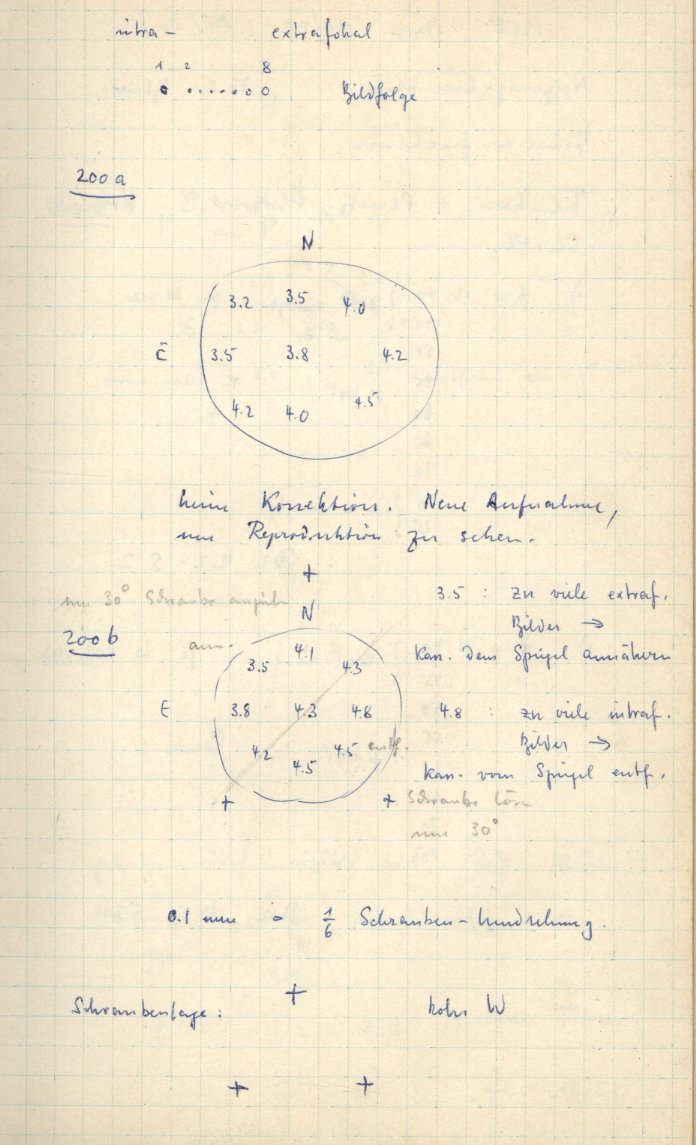 intra - extrafokal
1 2 8
Bildfolge
200 a
N
3.2 3.5 4.0
E 3.5 3.8 4.2
4.2 4.0 4.5
keine Korrektion. Neue Aufnahme,
neue Reproduktion zu sehen.
+
um 30° Schraube
N
3.5 : zu viele extraf.
Bilder →
Kass. dem Spiegel annähern
200 b
ann.
3.5 4.1 4.3
E 3.8 4.3 4.8
4.2 4.5 4.5 entf.
4.8 : zu viele intraf.
Bilder →
Kass. vom Spiegel entf.
+ + Schraube lösen
um 30°
0.1 mm = 1/6 Schrauben-Umdrehung.
Schraubenlage: + W
+ +